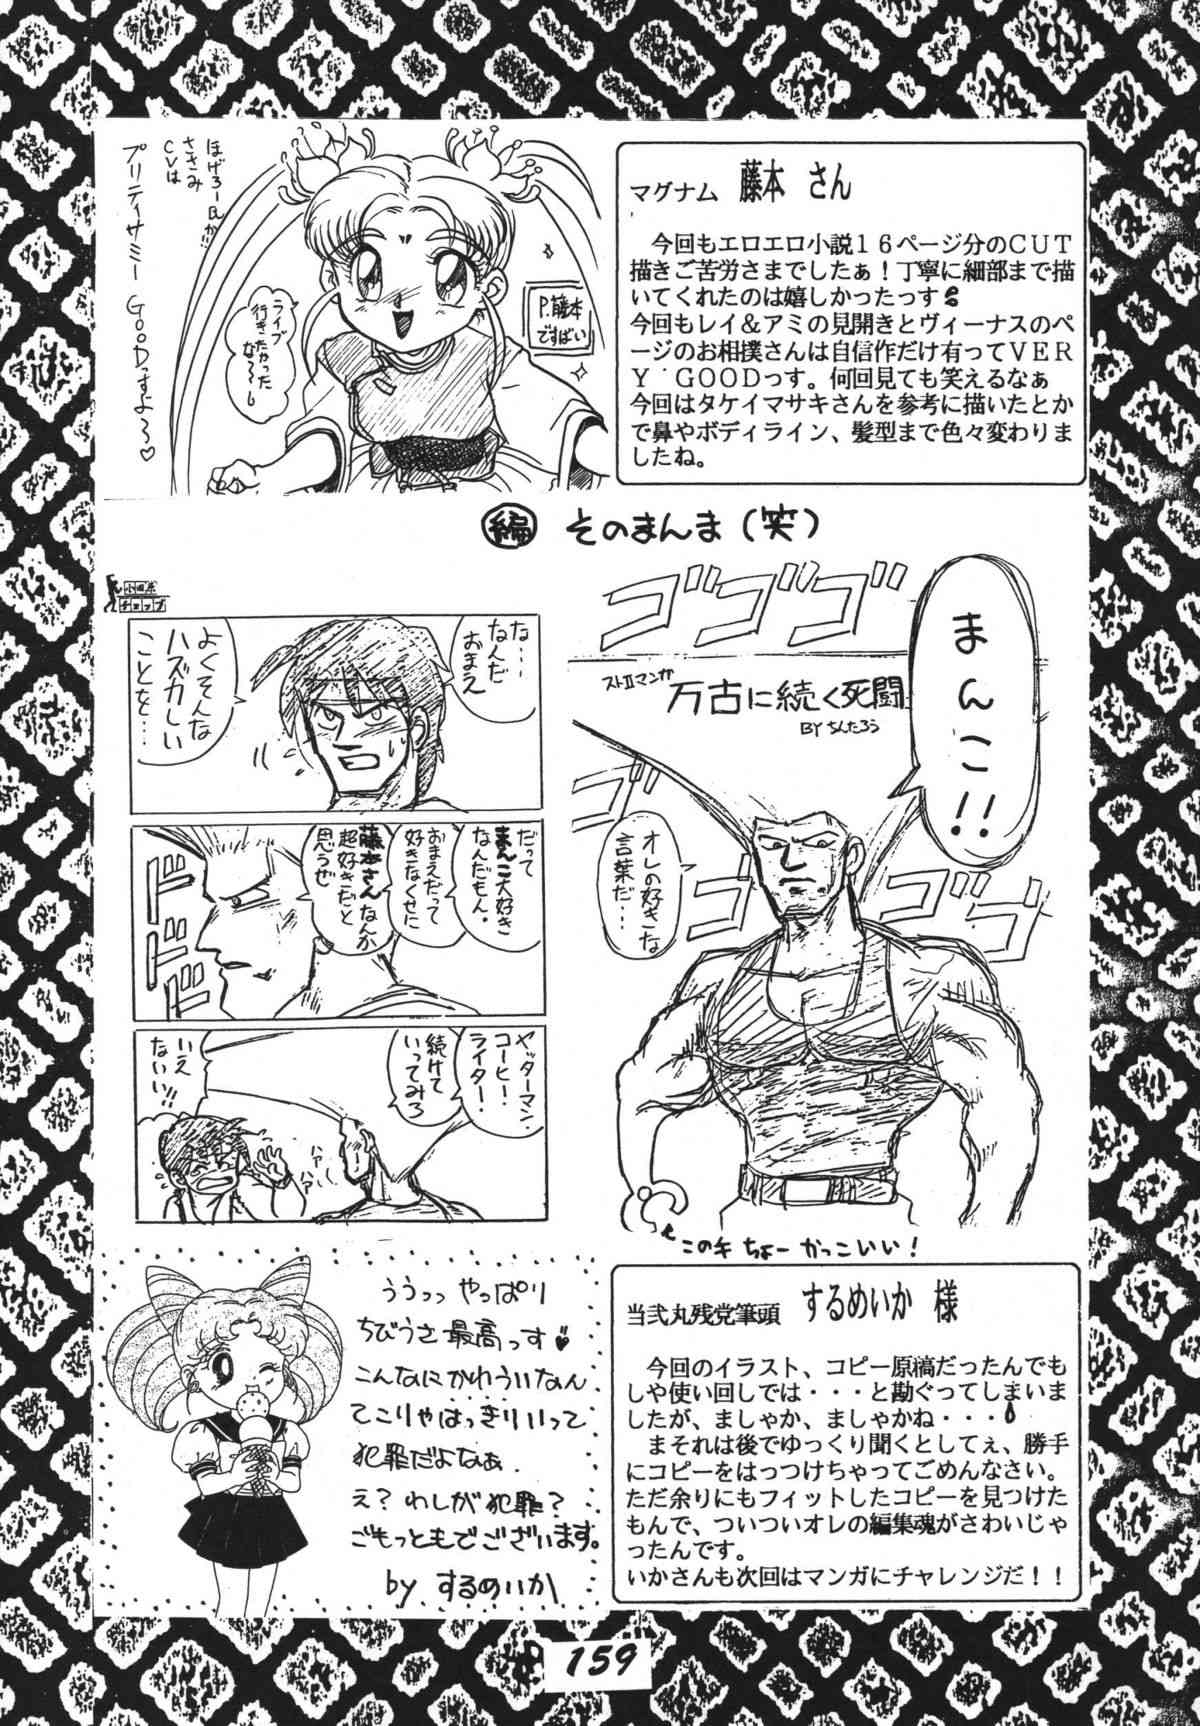 ほげろー氏が
ささみ
CVは
プリティサミーGOODっすよ〜♡
ライブ
行きたかった
な〜〜し
P.藤本
ですばい
マグナム 藤本 さん
今回もエロエロ小説16ページ分のCUT
描きご苦労さまでしたぁ!丁寧に細部まで描
いてくれたのは嬉しかったっす
今回もレイ&アミの見開きとヴィーナスのペ
ージのお相撲さんは自信作だけ有ってVER
Y GOODっす。何回見ても笑えるなぁ
今回はタケイマサキさんを参考に描いたとか
で鼻やボディライン、髪型まで色々変わりま
したね。
編 そのまんま(笑)
ゴゴゴ
まんこ!!
ストⅡマンガ
万古に続く死闘
BY ちんたろう
オレの好きな
言葉だ…
ゴ
ゴ
ゴゴ
この手 ちょー かっこいい!
チョップ
な…
なんだ
おまえ
よくそんな
ハズカしい
ことを…
だって
まんこ大好き
なんだもん。
おまえだって
好きなくせに
藤本さんなんか
超好きだと
思うぜ
ドドド
ヤッターマン
コーヒー
ライター!
続けて
いってみろ
いえ
ないい!!
ううっっ やっぱり
ちびうさ最高っす♥
こんなにかわういなん
てこりゃはっきりいって
犯罪だよなぁ
え?わしが犯罪?
ごもっともでございます。
by するめいか
当弐丸残党筆頭 するめいか 様
今回のイラスト、コピー原稿だったんでも
しや使い回しでは・・・と勘ぐってしまいま
したが、ましゃか、ましゃかね・・・
まそれは後でゆっくり聞くとしてぇ、勝手
にコピーをはっつけちゃってごめんなさい。
ただ余りにもフィットしたコピーを見つけた
もんで、ついついオレの編集魂がさわいじゃ
ったんです。
いかさんも次回はマンガにチャレンジだ!!
159